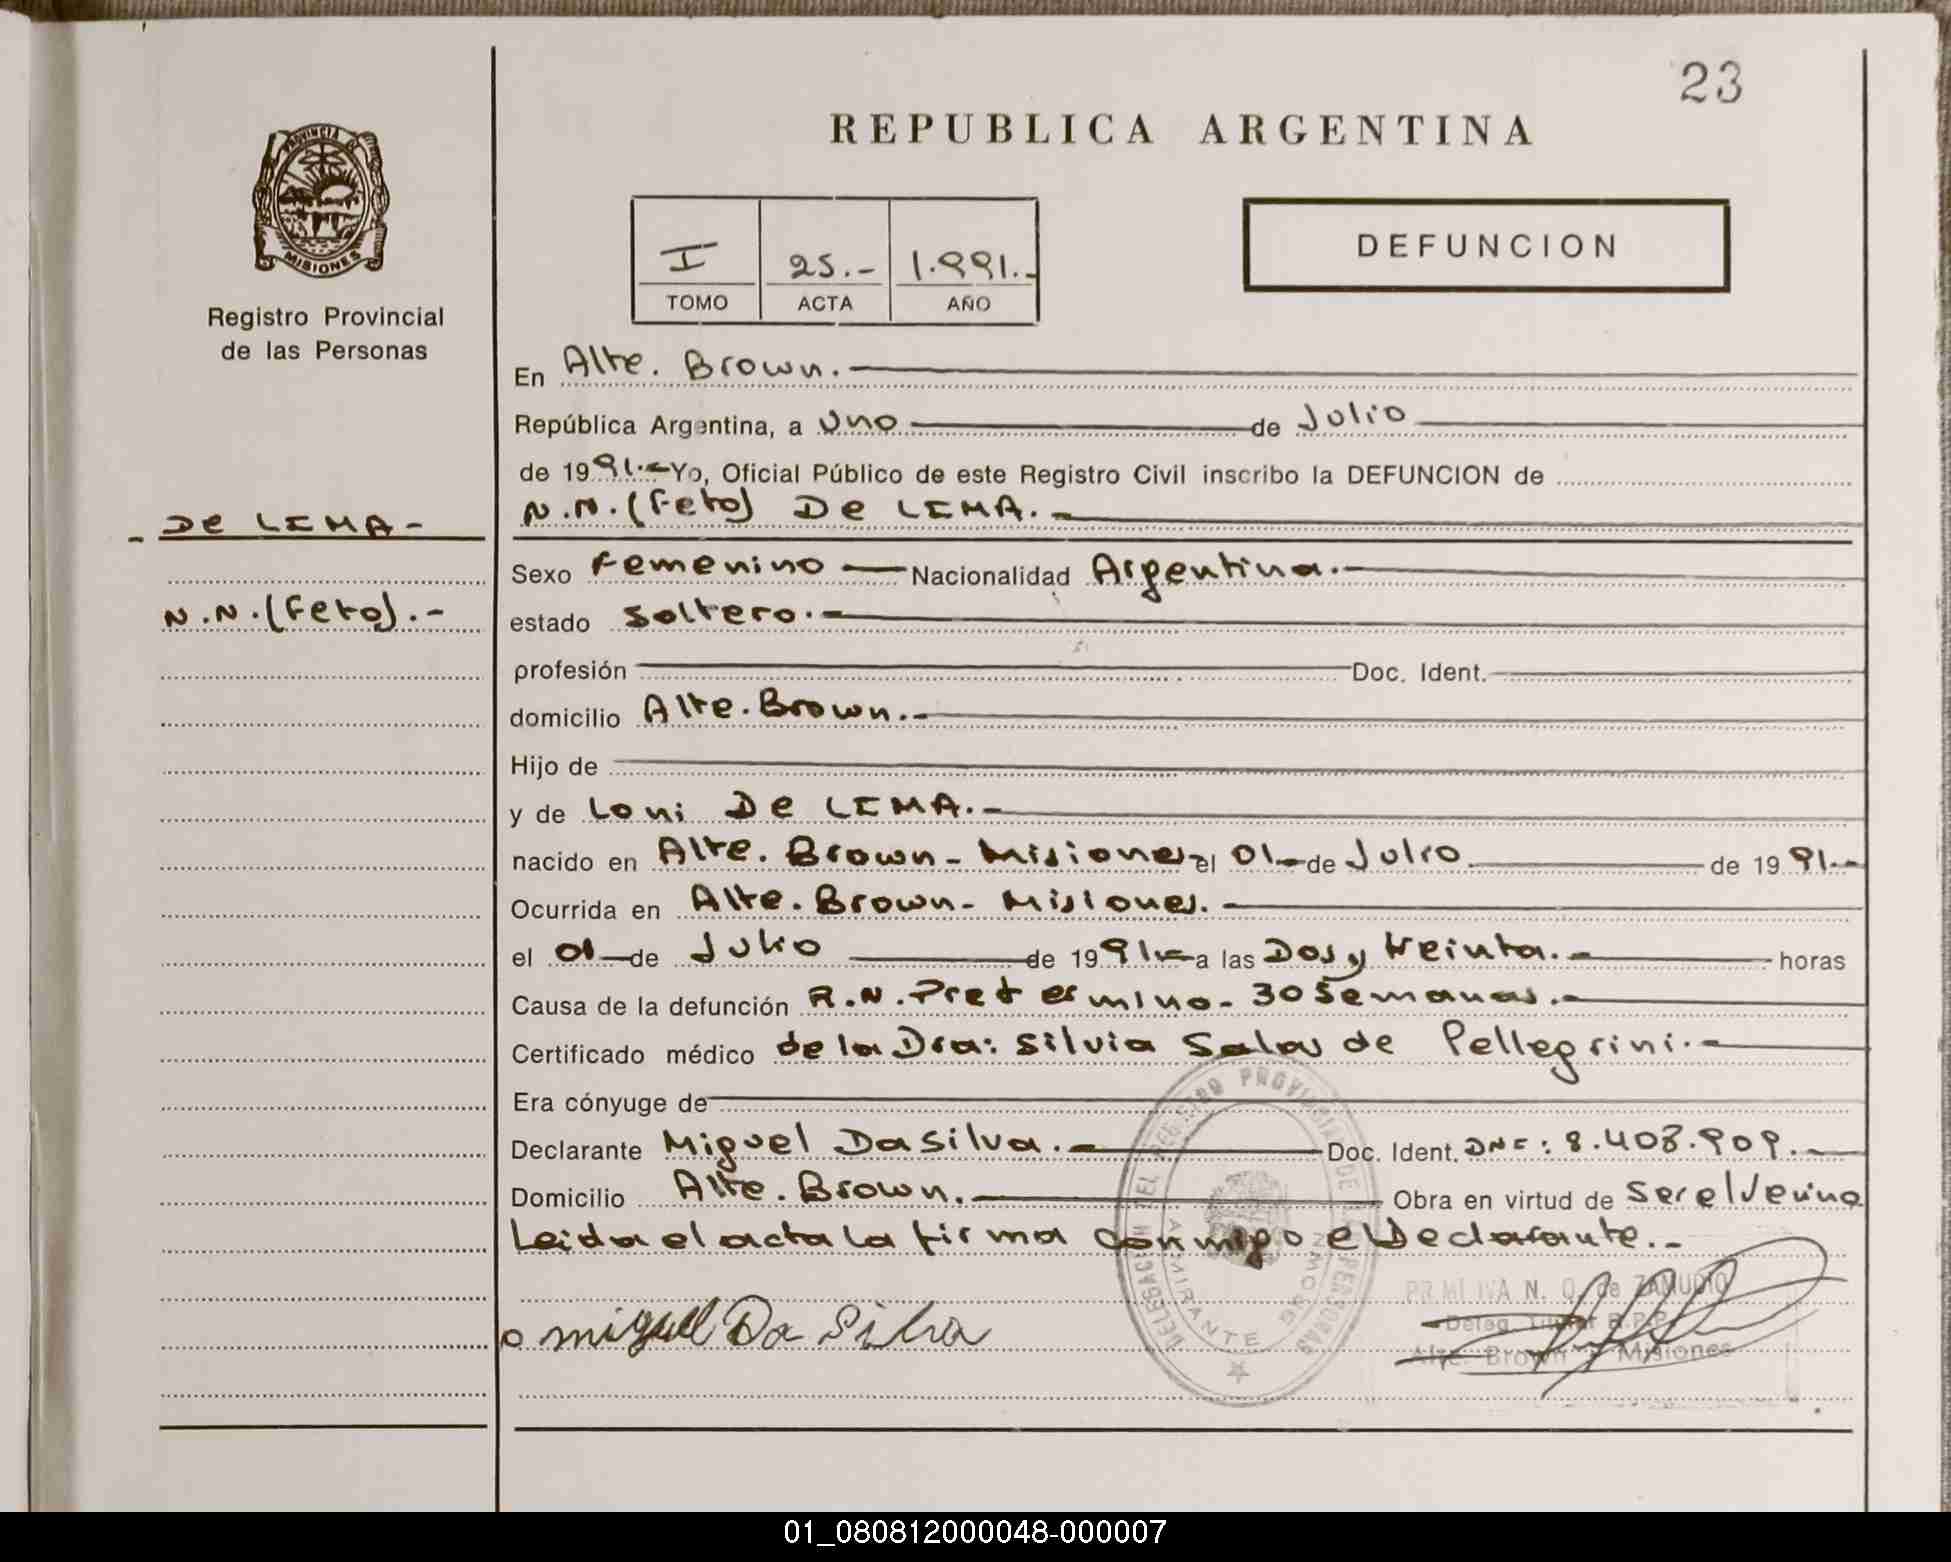 23
REPUBLICA ARGENTINA
PROVINCIA DE
MISIONES
Registro Provincial
de las Personas
I 25.- 1.991.-
TOMO ACTA AÑO
DEFUNCION
En Alte. Brown.
República Argentina, a uno de Julio
de 1991.- Yo, Oficial Público de este Registro Civil inscribo la DEFUNCION de
- DE LEMA -
N.N. (Feto) De LEMA.-
Sexo Femenino Nacionalidad Argentina.-
N.N. (Feto).-
estado Soltero.-
profesión Doc. Ident.
domicilio Alte. Brown.-
Hijo de
y de Loni De LEMA.-
nacido en Alte. Brown - Misiones- el 01- de Julio de 1991.-
Ocurrida en Alte. Brown - Misiones.
el 01 de Julio de 1991.- a las Dos y treinta.- horas
Causa de la defunción R.N. Pretermino - 30 Semanas.-
Certificado médico de la Dra: Silvia Salas de Pellegrini.-
Era cónyuge de
Declarante Miguel Da Silva.- Doc. Ident. DNI: 8.408.909.-
Domicilio Alte. Brown. Obra en virtud de ser el Vecino
Leida el acta la firma conmigo el Declarante.-
miguel Da Silva
DELEGACION DEL REGISTRO PROVINCIAL DE LAS PERSONAS
ALMIRANTE BROWN
PRIMITIVA N. O. de ZAMUDIO
Deleg. Titular R.P.P.
Alte. Brown - Misiones
01_080812000048-000007